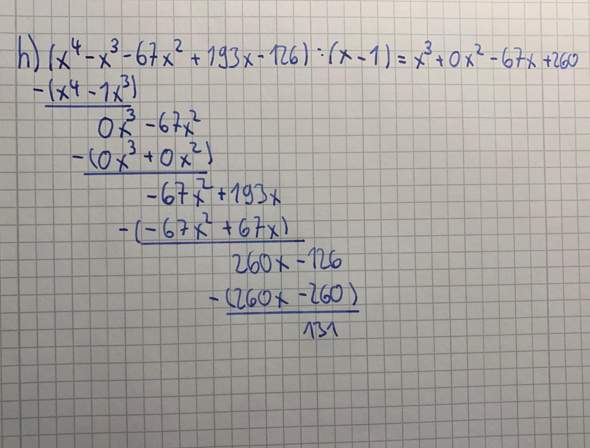 h) (x⁴ - x³ - 67x² + 193x - 126) : (x - 1) = x³ + 0x² - 67x + 260
-(x⁴ - 1x³)
0x³ - 67x²
-(0x³ + 0x²)
-67x² + 193x
-(-67x² + 67x)
260x - 126
-(260x - 260)
131